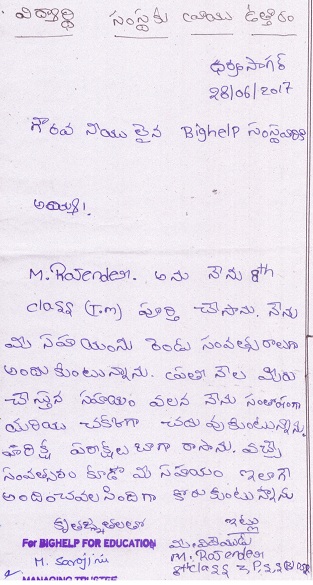 విద్యార్థి సంస్థకు రాయు ఉత్తరం
ధర్మసాగర్
28/06/2017
గౌరవ నీయు లైన Bighelp సంస్థవారికి
అయ్యా!
M. Rajender. అను నేను 8th
class (T.m) పూర్తి చేసాను. నేను
మీ సహాయంను రెండు సంవత్సరాలుగా
అందుకుంటున్నాను. ప్రతి నెల మీరు
చేస్తున సహాయం వలన నేను సంతోషంగా
మరియు చక్కగా చదువుకుంటున్నాను.
వార్షిక పరీక్షలు బాగా రాసాను. వచ్చే
సంవత్సరం కూడా మీ సహాయం ఇలాగే
అందించవలసిందిగా కోరుకుంటున్నాను
కృతజ్ఞతలతో
ఇట్లు
For BIGHELP FOR EDUCATION
మీ విధేయుడు
M. Sarojini
M. Rajender
MANAGING TRUSTEE
8th class Z.P.S.S